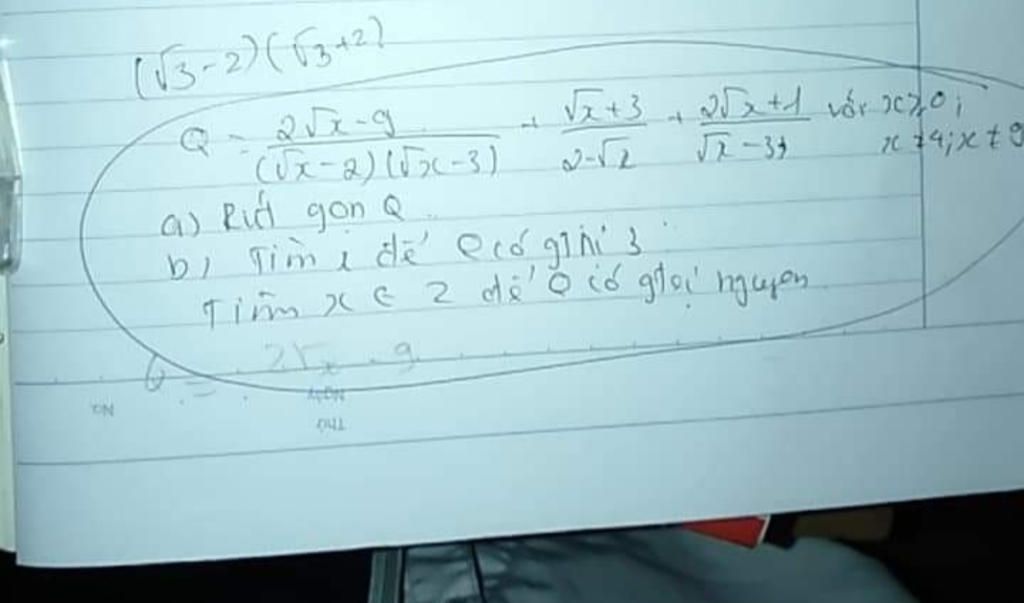 (√3-2)(√3+2)
Q = (2√x-9)/((√x-2)(√x-3)) + (√x+3)/(2-√x) + (2√x+1)/(√x-3) với x≥0; x≠4; x≠9
a) Rút gọn Q
b) Tìm x để Q có gTrị 3
Tìm x ∈ Z để Q có gtrị nguyên
Q = 2√x - 9
No.
Ngày
Thứ